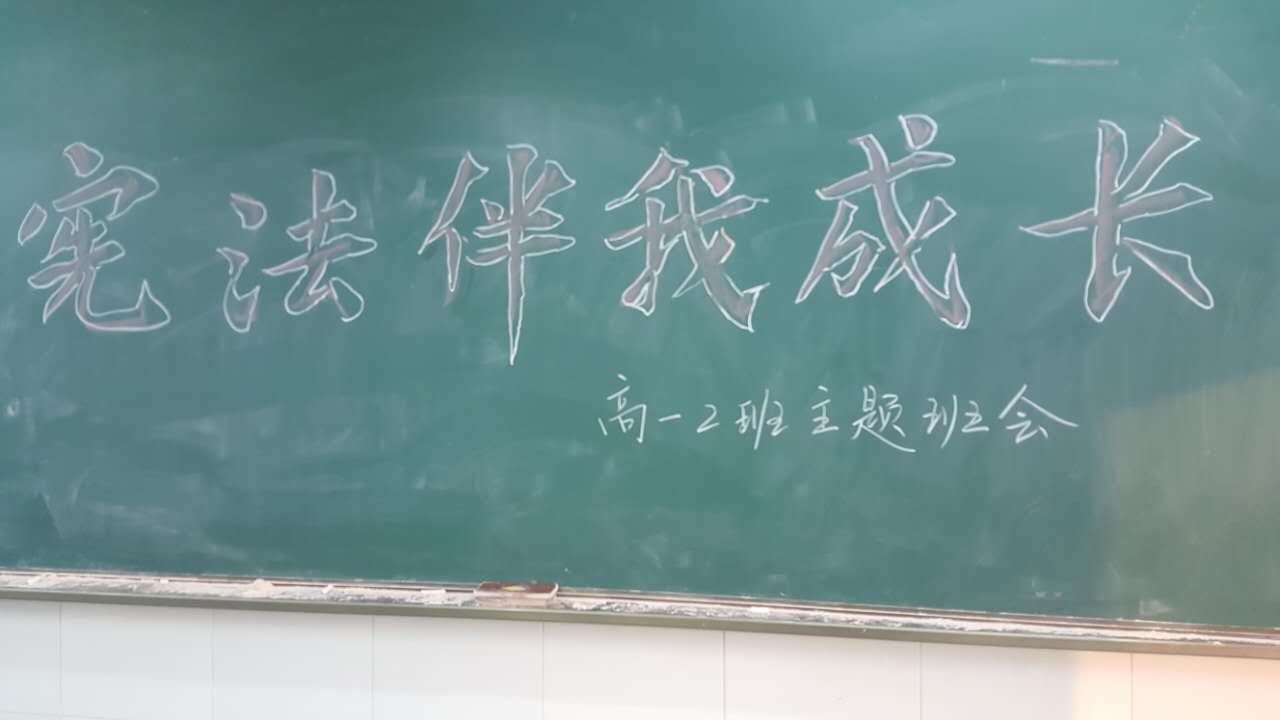 宪法伴我成长
高一2班主题班会